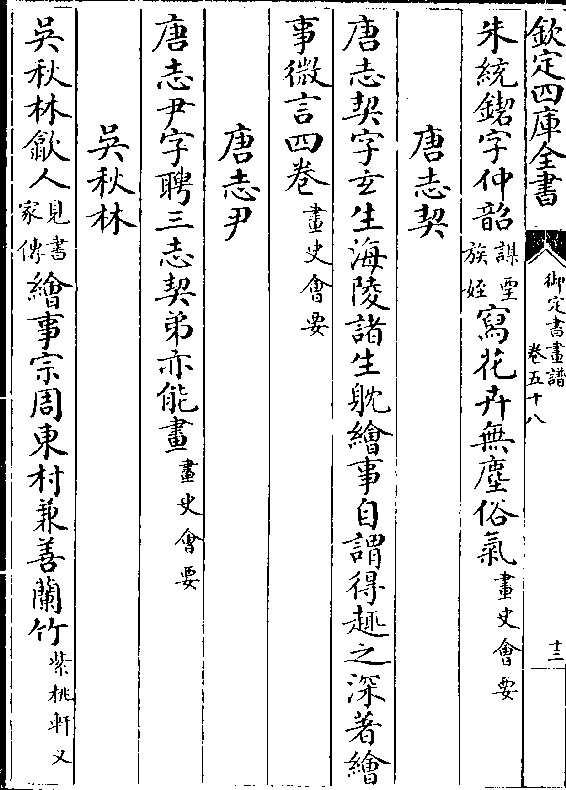 欽定四庫全書
御定書畫譜
卷五十八
朱統鍣字仲韶謀垔族姪寫花卉無塵俗氣畫史會要
唐志契
唐志契字玄生海陵諸生躭繪事自謂得趣之深著繪
事微言四卷畫史會要
唐志尹
唐志尹字聘三志契弟亦能畫畫史會要
吳秋林
吳秋林歙人見書家傳繪事宗周東村兼善蘭竹紫桃軒又